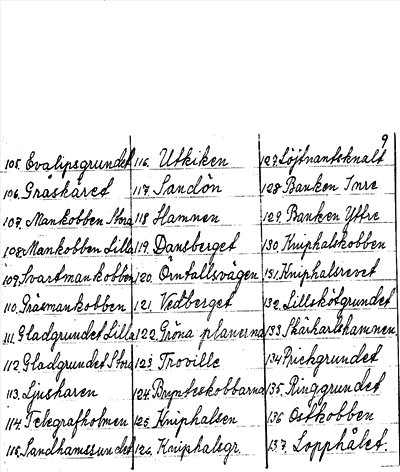 9
105. Evalipsgrundet
106. Gråskäret
107. Mankobben Stora
108. Mankobben Lilla
109. Svartmankobben
110. Gräsmankobben
111. Gladgrundet Lilla
112. Gladgrundet Stora
113. Ljusharen
114. Telegrafholmen
115. Sandhamssundet
116. Utkiken
117. Sandön
118 Hamnen
119. Dansberget
120. Örnfallsvägen
121. Vedberget
122. Gröna planerna
123 Troville
124. Brynteskobbarna
125. Kniphalsen
126. Kniphalsgr.
127. Löjtnantsknalt
128 Banken Inre
129. Banken Yttre
130. Kniphalskobben
131. Kniphalsrevet
132. Lillskötgrundet
133. Skärkarlshamnen
134. Prickgrundet
135. Ringgrundet
136 Östkobben
137. Lopphålet.